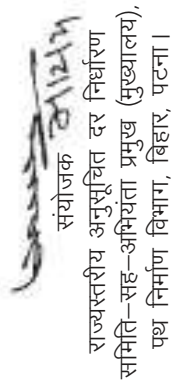 संयोजक
राज्यस्तरीय अनुसूचित दर निर्धारण
समिति–सह–अभियंता प्रमुख (मुख्यालय),
पथ निर्माण विभाग, बिहार, पटना।